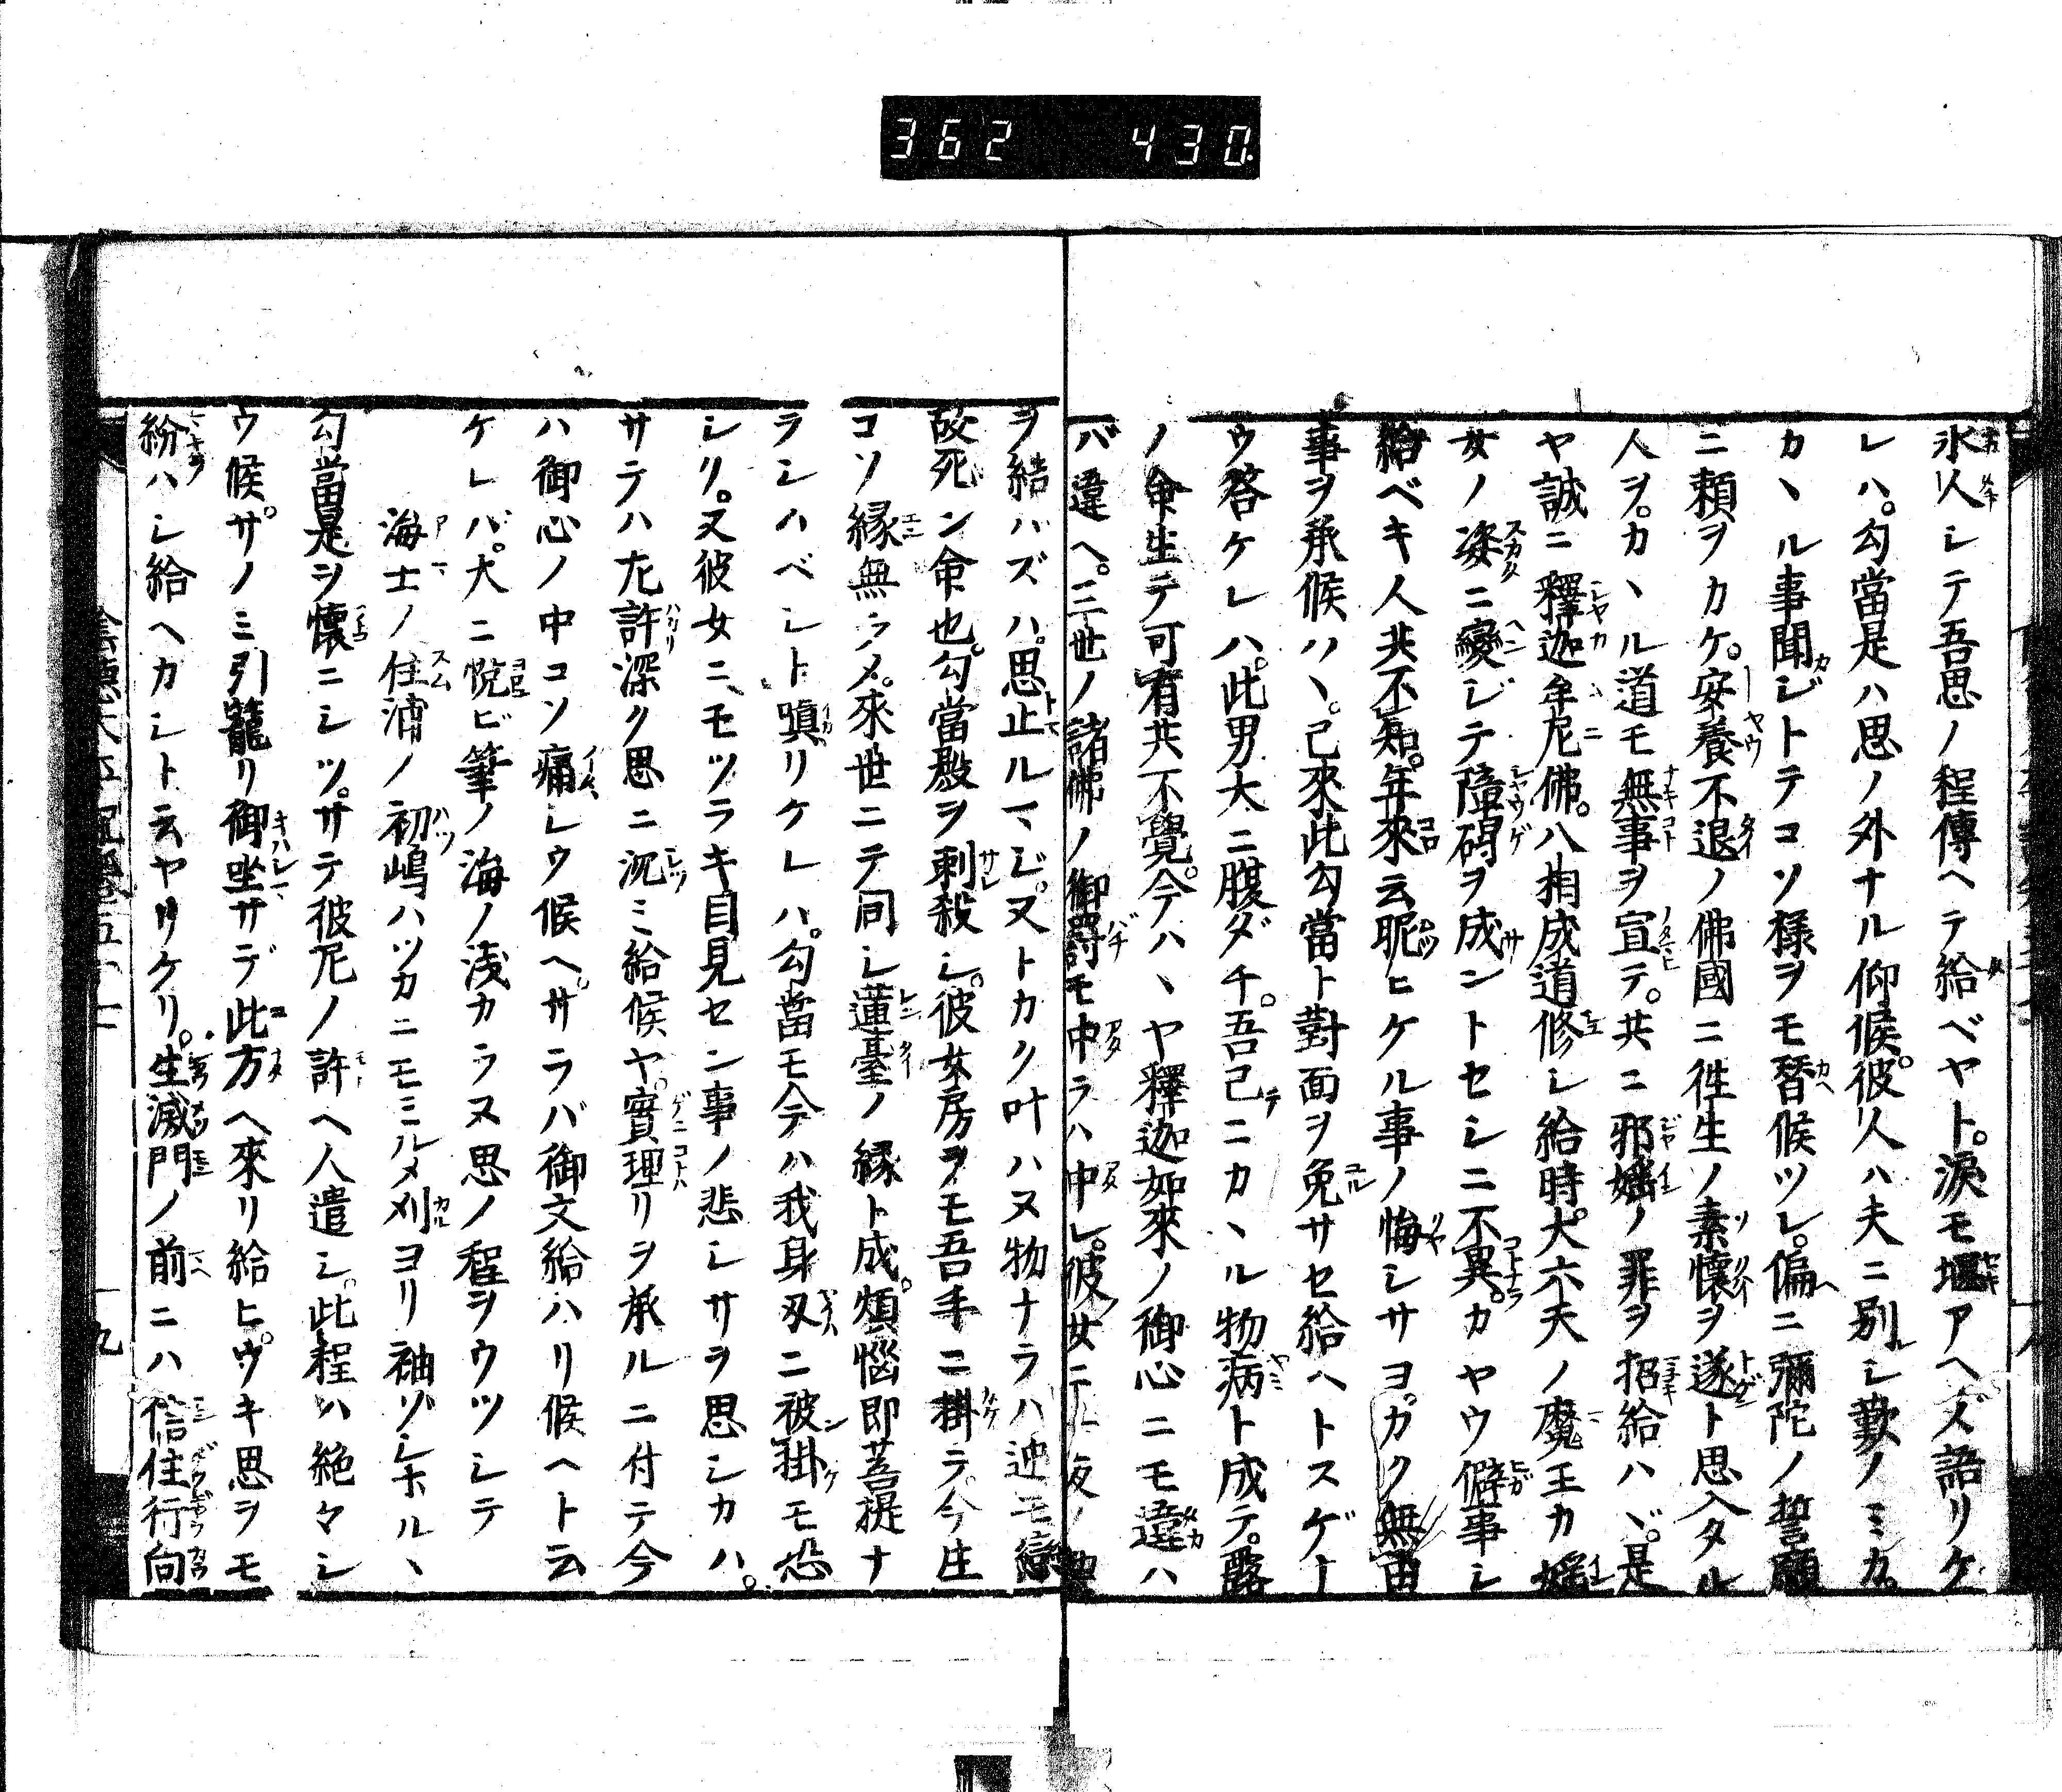 362 430
氷人シテ吾思ノ程傳ヘテ給ベヤト。涙モ堰アヘズ語リケ
レハ。勾當是ハ思ノ外ナル仰候。彼人ハ夫ニ別レシ歎ノミカ。
カヽル事聞ジトテコソ様ヲモ替候ツレ。偏ニ彌陀ノ誓願
ニ頼ヲカケ。安養不退ノ佛國ニ徃生ノ素懐ヲ遂ト思入タル
人ヲ。カヽル道モ無事ヲ宣テ。共ニ邪婬ノ罪ヲ招給ハヾ。是
ヤ誠ニ釋迦牟尼佛。八相成道修シ給時。大六天ノ魔王カ婬
女ノ姿ニ變ジテ障碍ヲ成ントセシニ不異。カヤウ僻事シ
給ベキ人共不知。年來云昵ヒケル事ノ悔シサヨ。カク無由
事ヲ承候ハヽ。己來此勾當ト對面ヲ免サセ給ヘトスゲー
ウ答ケレハ。此男大ニ腹ダチ。吾己ニカヽル物病ト成テ。露
ノ命生テ可有共不覺。今ハヽヤ釋迦如來ノ御心ニモ違ハ
バ違ヘ。三世ノ諸佛ノ御罸モ中ラハ中レ。彼女ニ一夜ノ
ヲ結バズハ。思止ルマジ。又トカク叶ハヌ物ナラハ迚モ戀
故死ン命也。勾當殿ヲ刺殺シ。彼女房ヲモ吾手ニ掛ラ。今生
コソ縁無ラメ。來世ニテ同シ蓮臺ノ縁ト成。煩惱即菩提ナ
ランハベシト嗔リケレハ。勾當モ今ハ我身刄ニ被掛モ恐
シリ。又彼女ニモツラキ目見セン事ノ悲シサヲ思シカハ。
サテハ尤許深ク思ニ沉ミ給候ヤ。實理リヲ承ルニ付テ今
ハ御心ノ中コソ痛レウ候ヘ。サラバ御文給ハリ候ヘト云
ケレバ。大ニ悦ビ筆ノ海ノ浅カラヌ思ノ程ヲウツシテ
海士ノ住浦ノ初嶋ハツカニモミルメ刈ヨリ袖ゾシホルヽ
勾當是ヲ懷ニシツ。サテ彼尼ノ許ヘ人遣シ。此程ハ絶々シ
ウ候。サノミ引籠リ御坐サデ此方ヘ來リ給ヒ。ウキ思ヲモ
紛ハシ給ヘカシト云ヤリケリ。生滅門ノ前ニハ信住行向